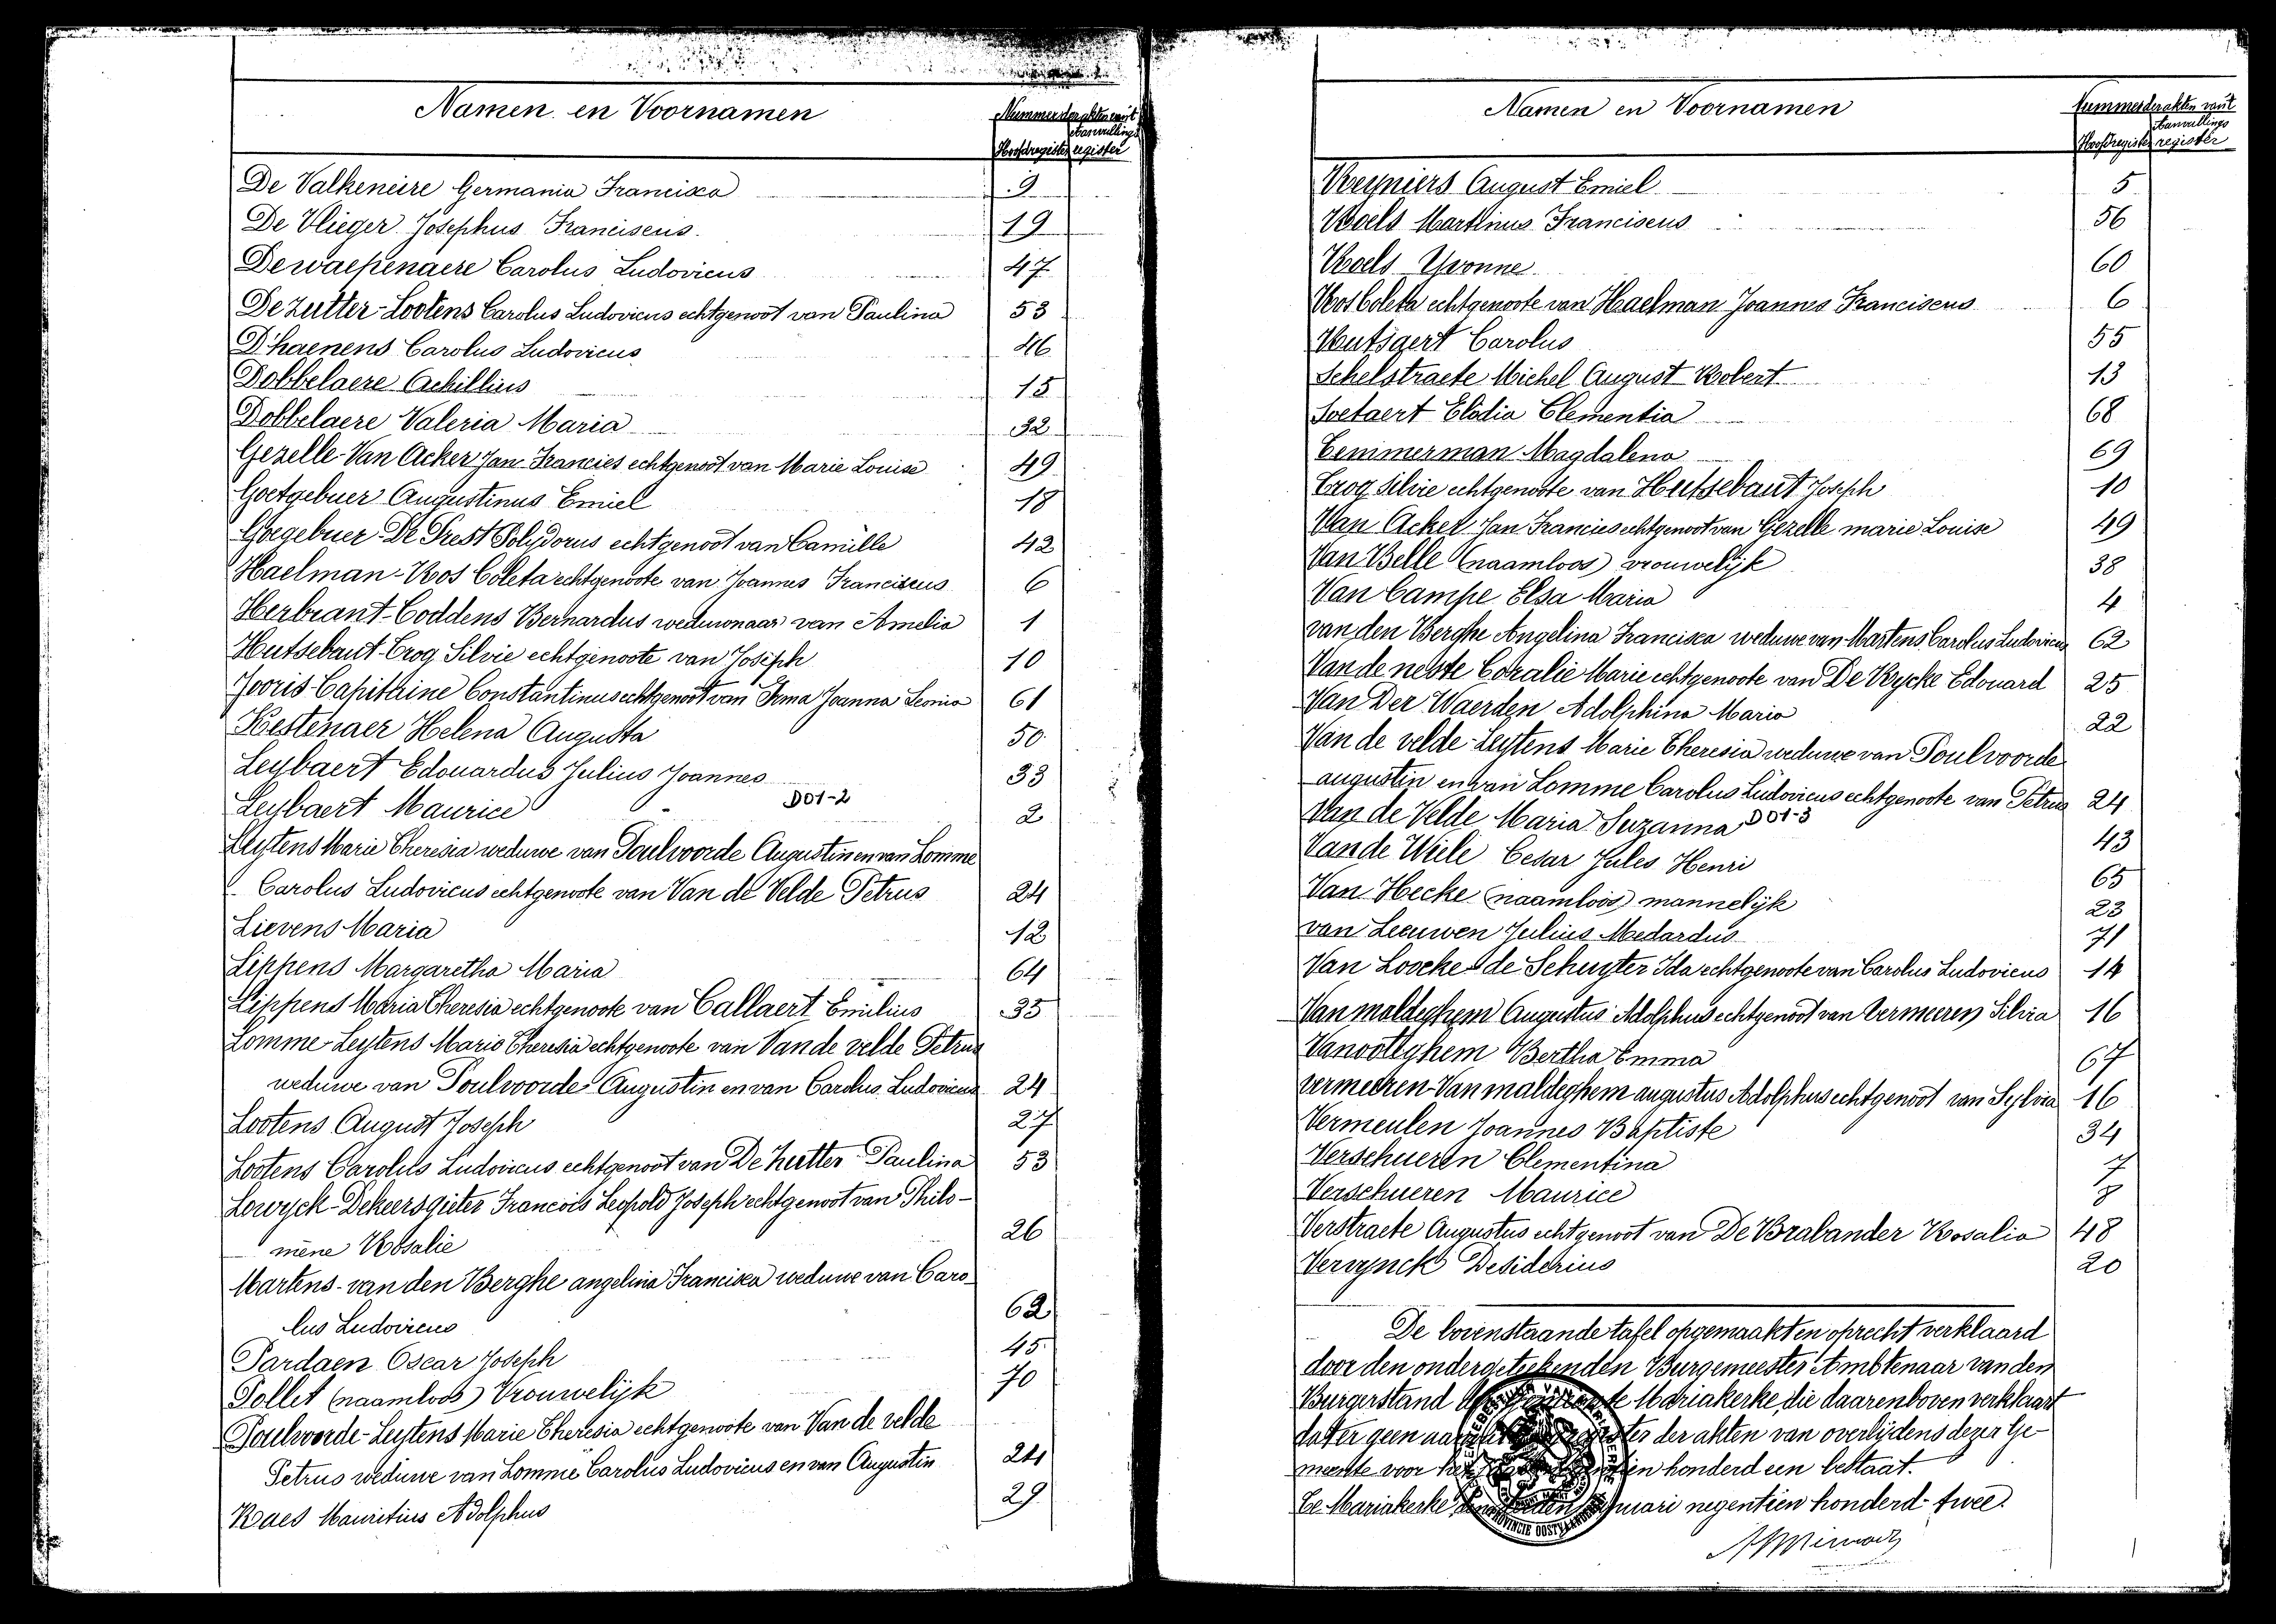 Namen en Voornamen
Nummer der akten van 't
Aanvullings
Hoofdregister register
De Valkeneire Germania Francisca 9
De Vlieger Josephus Franciscus 19
Dewaepenaere Carolus Ludovicus 47
De Zutter-Lootens Carolus Ludovicus echtgenoot van Paulina 53
D'haenens Carolus Ludovicus 46
Dobbelaere Achillius 15
Dobbelaere Valeria Maria 32
Gezelle-Van Acker Jan Francies echtgenoot van Marie Louise 49
Goetgebuer Augustinus Emiel 18
Goegebuer-De Prest Polydorus echtgenoot van Camille 42
Haelman-Roos Coleta echtgenoote van Joannes Franciscus 6
Herbrant-Coddens Bernardus weduwnaar van Amelia 1
Hutsebaut-Crog Silvie echtgenoote van Joseph 10
Jooris-Capithine Constantinus echtgenoot van Irma Joanna Leonia 61
Kestenaer Helena Augusta 50
Leybaert Edouardus Julius Joannes 33
Leybaert Maurice D01-2 2
Leytens Marie Theresia weduwe van Poulvoorde Augustin en van Lomme
Carolus Ludovicus echtgenoote van Van de Velde Petrus 24
Lievens Maria 12
Lippens Margaretha Maria 64
Lippens Maria Theresia echtgenoote van Callaert Emilius 35
Lomme-Leytens Marie Theresia echtgenoote van Van de velde Petrus
weduwe van Poulvoorde Augustin en van Carolus Ludovicus 24
Lootens August Joseph 27
Lootens Carolus Ludovicus echtgenoot van De Zutter Paulina 53
Lowyck-Dekeersgieter Francois Leopold Joseph echtgenoot van Philo-
mène Rosalie 26
Martens-van den Berghe angelina Francisca weduwe van Caro-
lus Ludovicus 62
Pardaen Oscar Joseph 45
Pollet (naamloos) Vrouwelijk 70
Poulvoorde-Leytens Marie Theresia echtgenoote van Van de velde
Petrus weduwe van Lomme Carolus Ludovicus en van Augustin 24
Raes Mauritius Adolphus 29
Namen en Voornamen
Nummer der akten van 't
Aanvullings
Hoofdregister register
Reyniers August Emiel 5
Roels Martinus Franciscus 56
Roels Yvonne 60
Roos Coleta echtgenoote van Haelman Joannes Franciscus 6
Rutsaert Carolus 55
Schelstraete Michel August Robert 13
Soetaert Elodia Clementia 68
Temmerman Magdalena 69
Trog Silvie echtgenoote van Hutsebaut Joseph 10
Van Acker Jan Francies echtgenoot van Gezelle marie Louise 49
Van Belle (naamloos) vrouwelijk 38
Van Campe Elsa Maria 4
van den Berghe Angelina Francisca weduwe van Martens Carolus Ludovicus 62
Van de neste Coralie Marie echtgenoote van De Rycke Edouard 25
Van Der Waerden Adolphina Maria 22
Van de velde-Leytens Marie Theresia weduwe van Poulvoorde
augustin en van Lomme Carolus Ludovicus echtgenoote van Petrus 24
Van de Velde Maria Suzanna D01-3 43
Van de Wiele Cesar Jules Henri 65
Van Hecke (naamloos) mannelijk 23
van Leeuwen Julius Medardus 71
Van Loocke-de Schuyter Ida echtgenoote van Carolus Ludovicus 14
Van maldeghem Augustus Adolphus echtgenoot van Vermeeren Silvia 16
Vanooteghem Bertha Emma 67
Vermeeren-Van maldeghem augustus Adolphus echtgenoot van Sylvia 16
Vermeulen Joannes Baptiste 34
Verschueren Clementina 7
Verschueren Maurice 8
Verstraete Augustus echtgenoot van De Brabander Rosalia 48
Vervynck Desiderius 20
De bovenstaande tafel opgemaakt en oprecht verklaard
door den ondergeteekenden Burgemeester Ambtenaar van den
Burgerstand Mariakerke, die daarenboven verklaart
dat er geen der akten van overlijdens dezer Ge-
meente voor het honderd een bestaat.
Te Mariakerke Januari negentien honderd twee.